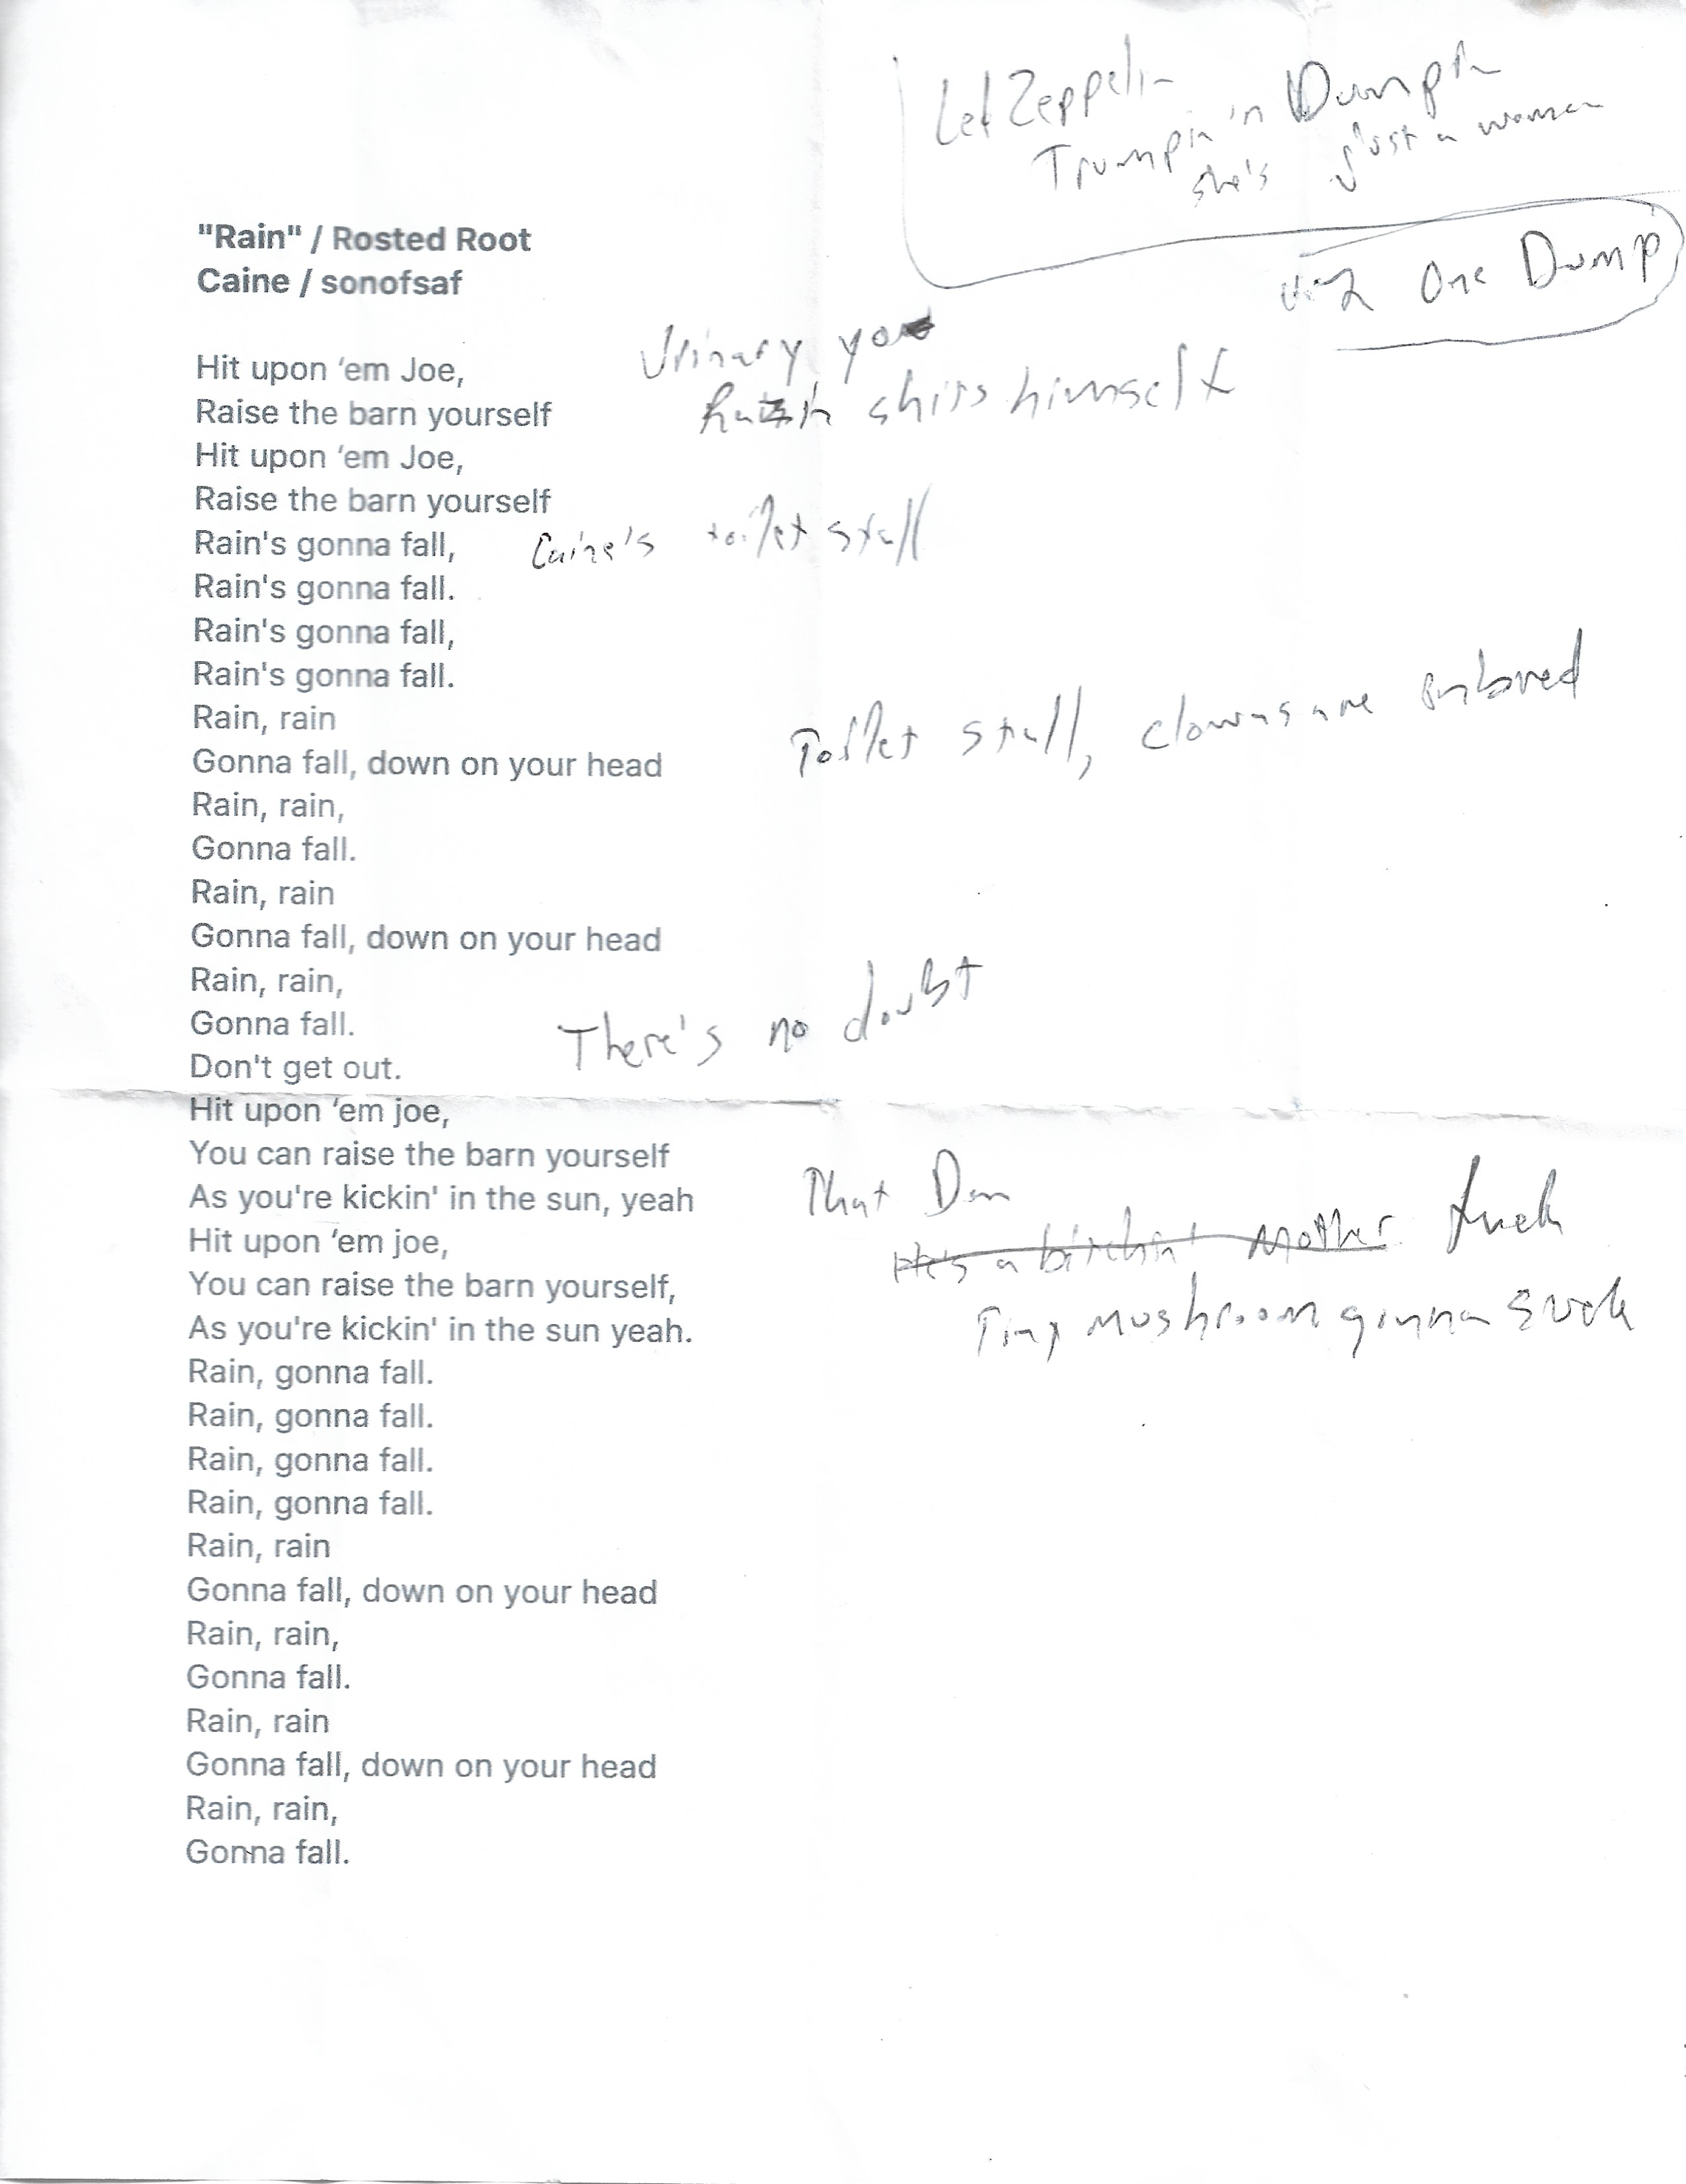 Led Zeppelin
Trumpin 'n Dumpin
she's just a woman
One Dump
"Rain" / Rosted Root
Caine / sonofsaf
Urinary
Hit upon ‘em Joe,
shits himself
Raise the barn yourself
Hit upon ‘em Joe,
Raise the barn yourself
Rain's gonna fall, Caine's toilet stall
Rain's gonna fall.
Rain's gonna fall,
Rain's gonna fall.
Rain, rain
Toilet stall, clowns are
Gonna fall, down on your head
Rain, rain,
Gonna fall.
Rain, rain
Gonna fall, down on your head
Rain, rain,
Gonna fall.
There's no doubt
Don't get out.
Hit upon ‘em joe,
You can raise the barn yourself
That
As you're kickin' in the sun, yeah
He's a bitchin' mother fuck
Hit upon ‘em joe,
You can raise the barn yourself,
Tiny mushroom gonna suck
As you're kickin' in the sun yeah.
Rain, gonna fall.
Rain, gonna fall.
Rain, gonna fall.
Rain, gonna fall.
Rain, rain
Gonna fall, down on your head
Rain, rain,
Gonna fall.
Rain, rain
Gonna fall, down on your head
Rain, rain,
Gonna fall.